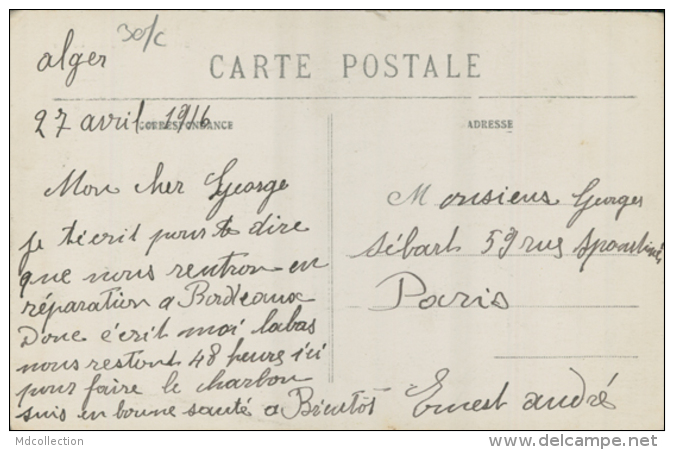 30/c
alger
CARTE POSTALE
27 avril 1916
CORRESPONDANCE
ADRESSE
Mon cher George
je técrit pour te dire
que nous rentron en
réparation a Bordeaux
Donc écrit moi labas
nous restont 48 heures ici
pour faire le charbon
suis en bonne santé a Bientôt
Monsieur Georges
Sébart 59 rue
Paris
Ernest andré
Mdcollection
www.delcampe.net